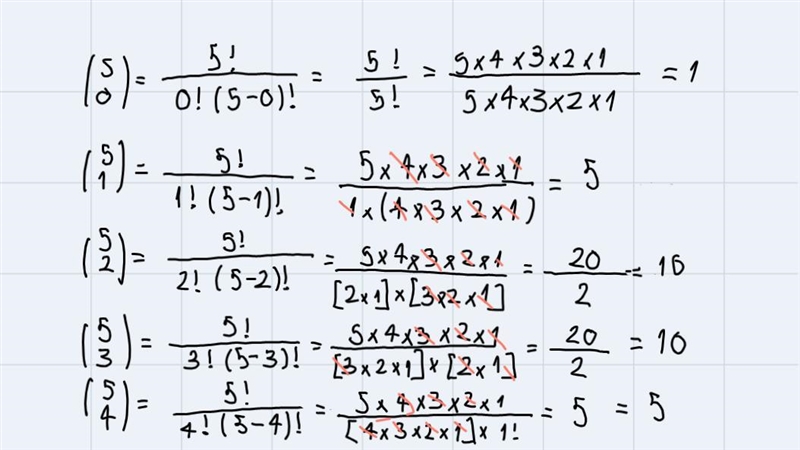 (5 0) = 5! / 0! (5-0)! = 5! / 5! = 5×4×3×2×1 / 5×4×3×2×1 = 1
(5 1) = 5! / 1! (5-1)! = 5×4×3×2×1 / 1×(4×3×2×1) = 5
(5 2) = 5! / 2! (5-2)! = 5×4×3×2×1 / [2×1]×[3×2×1] = 20 / 2 = 10
(5 3) = 5! / 3! (5-3)! = 5×4×3×2×1 / [3×2×1]×[2×1] = 20 / 2 = 10
(5 4) = 5! / 4! (5-4)! = 5×4×3×2×1 / [4×3×2×1]×1! = 5 = 5